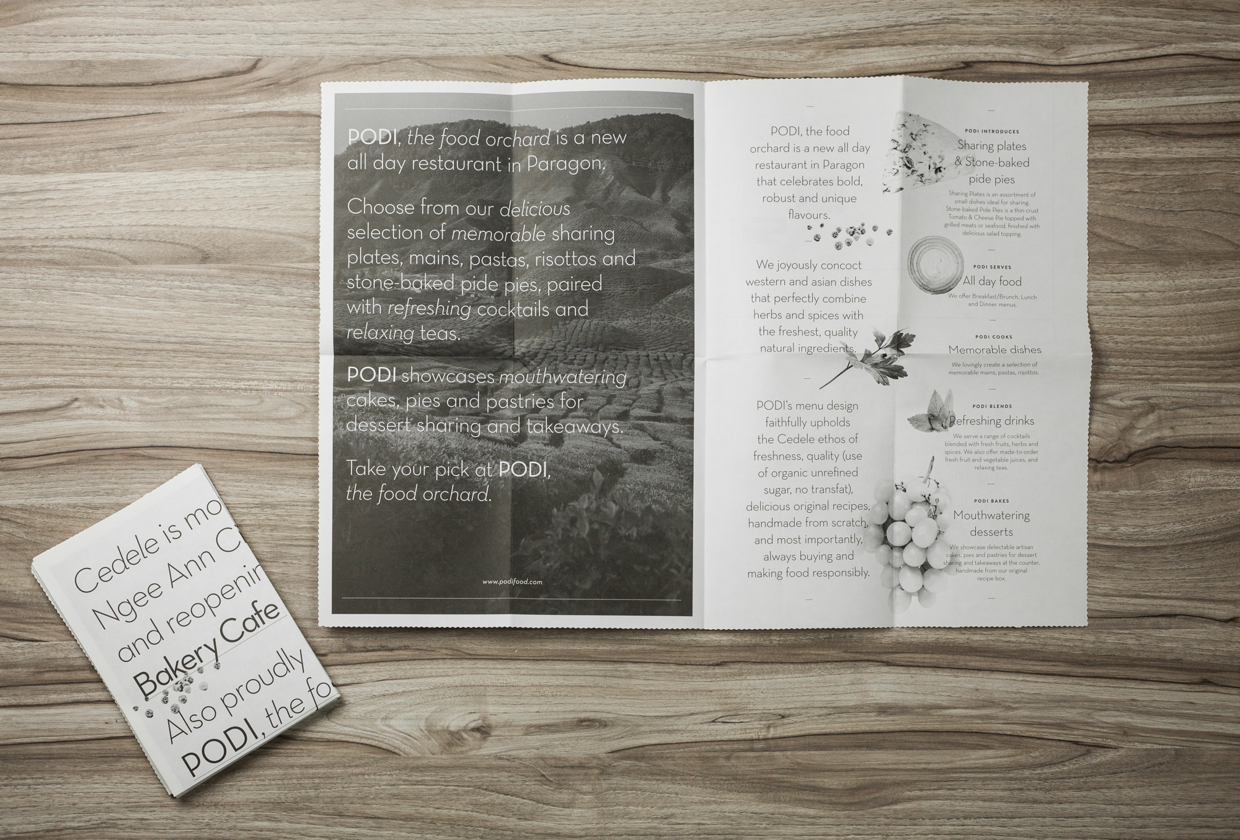 PODI, the food orchard is a new
all day restaurant in Paragon.
Choose from our delicious
selection of memorable sharing
plates, mains, pastas, risottos and
stone-baked pide pies, paired
with refreshing cocktails and
relaxing teas.
PODI showcases mouthwatering
cakes, pies and pastries for
dessert sharing and takeaways.
Take your pick at PODI,
the food orchard.
www.podifood.com
PODI, the food
orchard is a new all day
restaurant in Paragon
that celebrates bold,
robust and unique
flavours.
We joyously concoct
western and asian dishes
that perfectly combine
herbs and spices with
the freshest, quality
natural ingredients.
PODI's menu design
faithfully upholds
the Cedele ethos of
freshness, quality (use
of organic unrefined
sugar, no transfat),
delicious original recipes,
handmade from scratch,
and most importantly,
always buying and
making food responsibly.
PODI INTRODUCES
Sharing plates
& Stone-baked
pide pies
Sharing Plates is an assortment of
small dishes ideal for sharing.
Stone-baked Pide Pies is a thin crust
Tomato & Cheese Pie topped with
grilled meats or seafood; finished with
delicious salad topping.
PODI SERVES
All day food
We offer Breakfast/Brunch, Lunch
and Dinner menus.
PODI COOKS
Memorable dishes
We lovingly create a selection of
memorable mains, pastas, risottos.
PODI BLENDS
Refreshing drinks
We serve a range of cocktails
blended with fresh fruits, herbs and
spices. We also offer made-to-order
fresh fruit and vegetable juices, and
relaxing teas.
PODI BAKES
Mouthwatering
desserts
We showcase delectable artisan
cakes, pies and pastries for dessert
sharing and takeaways at the counter,
handmade from our original
recipe box.
Cedele is mo
Ngee Ann C
and reopenin
Bakery Cafe
Also proudly
PODI, the fo